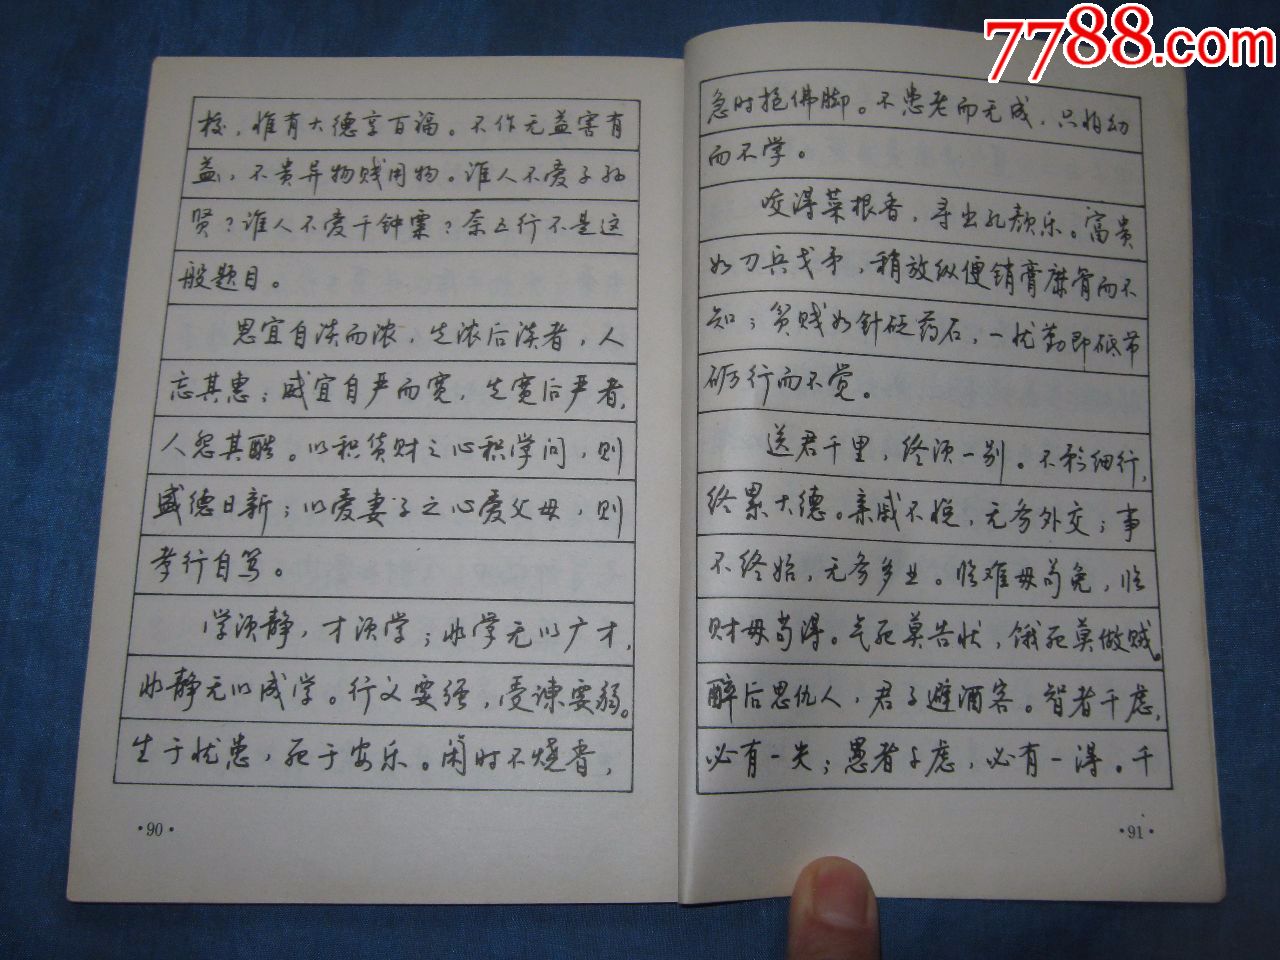 7788.com
校，惟有大德享百福。不作无益害有
益，不贵异物贱用物。谁人不爱子孙
贤？谁人不爱千钟粟？奈五行不是这
般题目。
恩宜自淡而浓，先浓后淡者，人
忘其惠；威宜自严而宽，先宽后严者，
人怨其酷。以积货财之心积学问，则
盛德日新；以爱妻子之心爱父母，则
孝行自笃。
学须静，才须学；非学无以广才，
非静无以成学。行义要强，受谏要弱。
生于忧患，死于安乐。闲时不烧香，
·90·
急时抱佛脚。不患老而无成，只怕幼
而不学。
咬得菜根香，寻出孔颜乐。富贵
如刀兵戈矛，稍放纵便销膏靡骨而不
知；贫贱如针砭药石，一忧勤即砥节
砺行而不觉。
送君千里，终须一别。不矜细行，
终累大德。亲戚不悦，无务外交；事
不终始，无务多业。临难毋苟免，临
财毋苟得。气死莫告状，饿死莫做贼。
醉后思仇人，君子避酒客。智者千虑，
必有一失；愚者千虑，必有一得。千
·91·